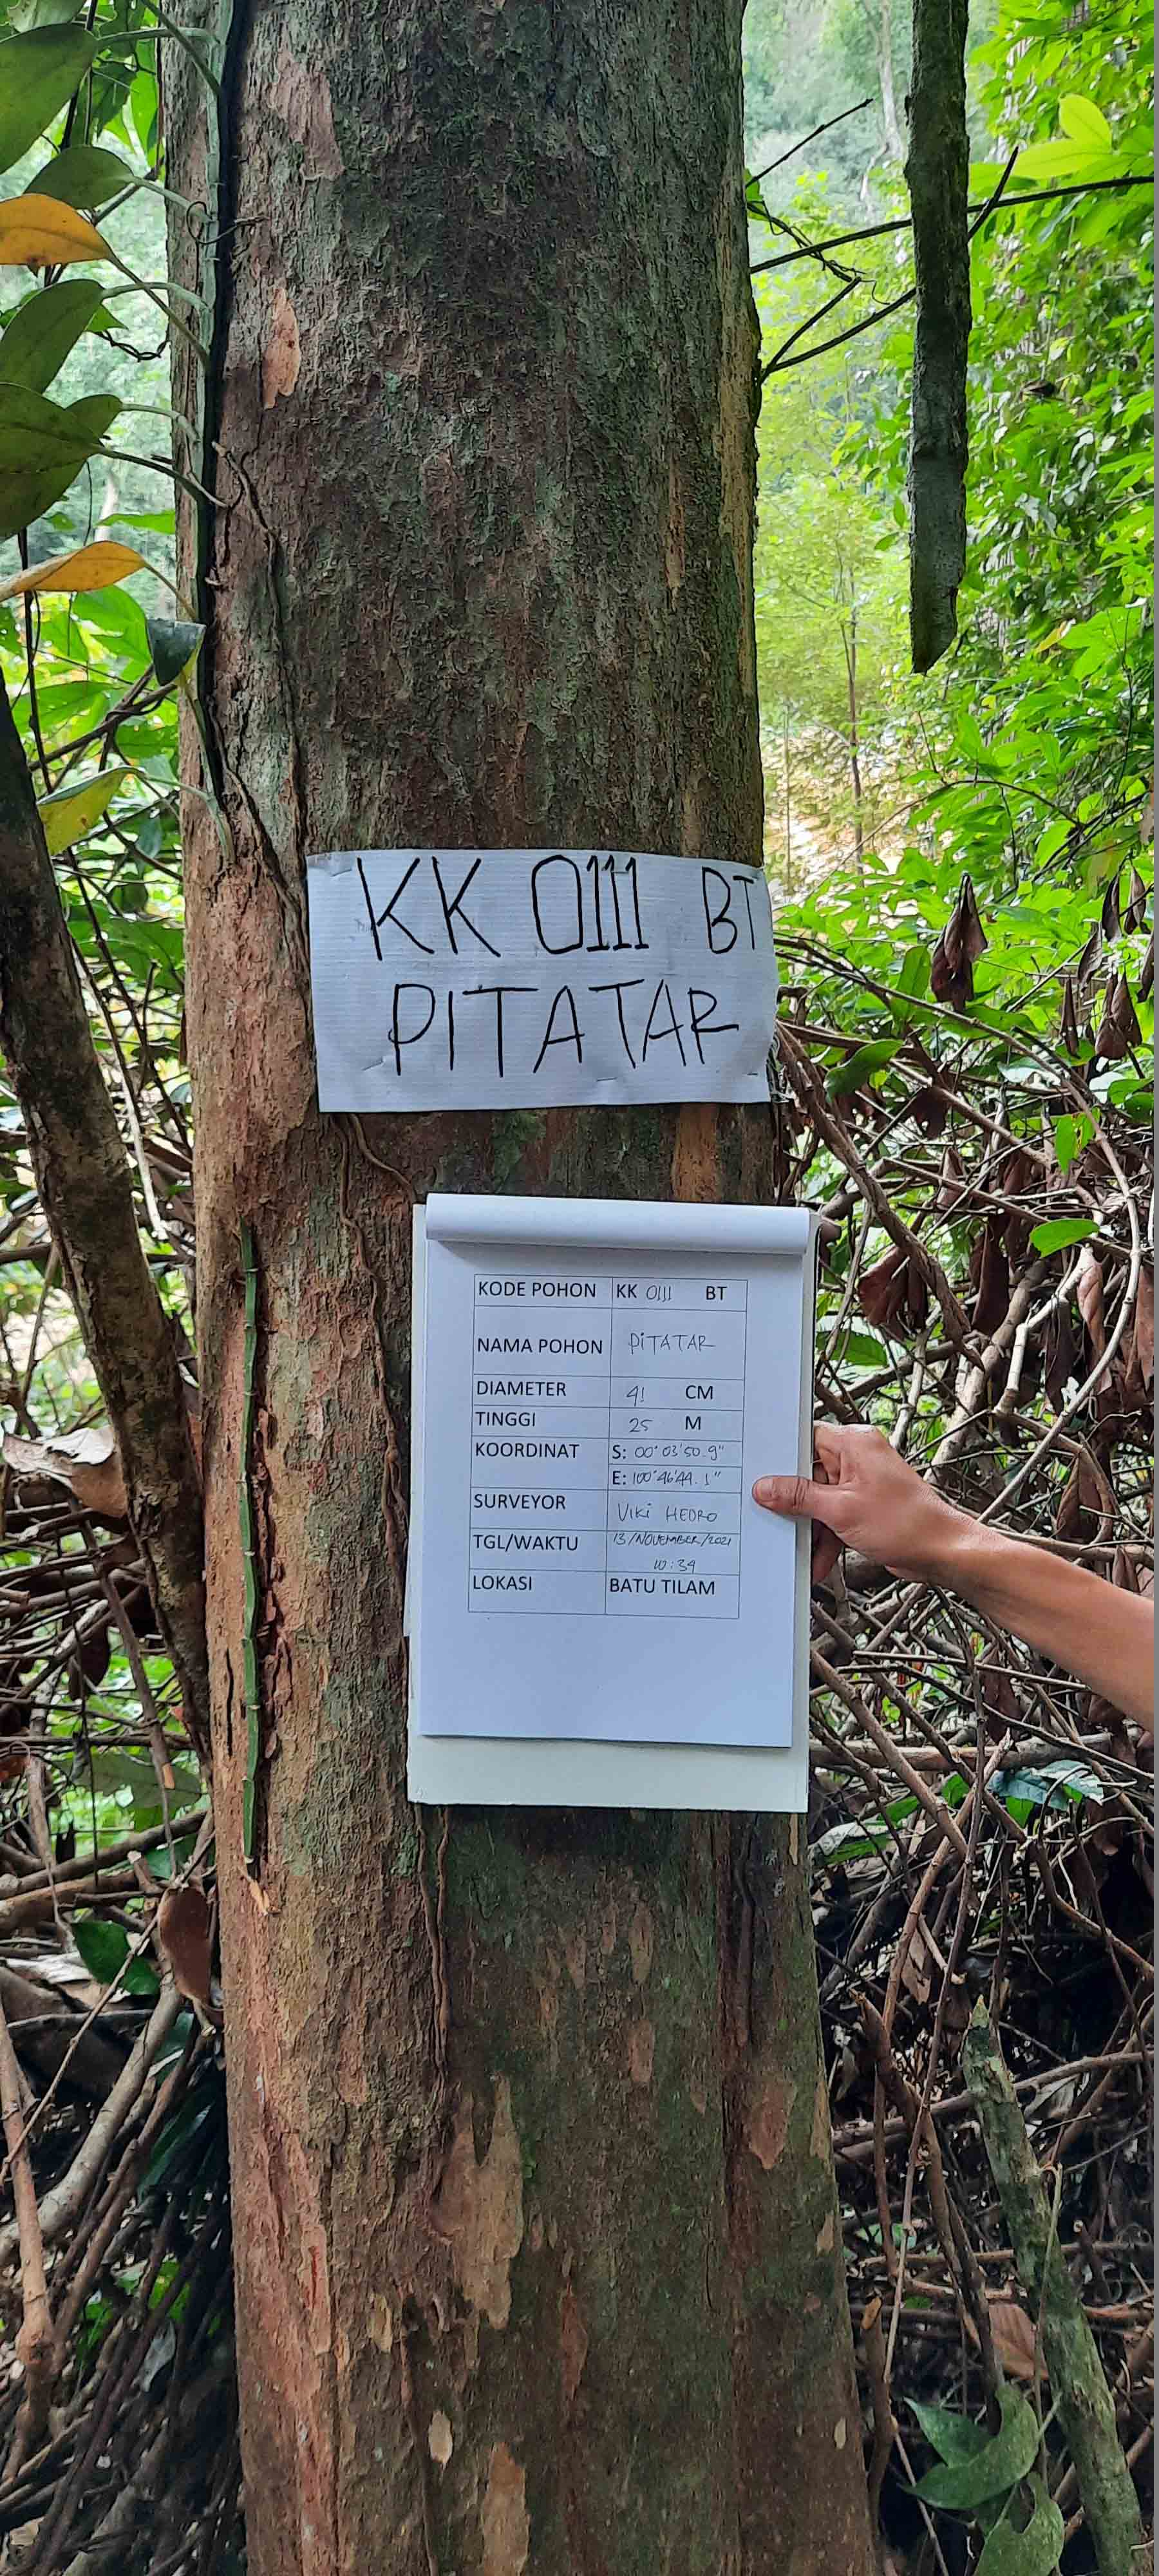 KK 0111 BT
PITATAR
KODE POHON KK 0111 BT
NAMA POHON PITATAR
DIAMETER 41 CM
TINGGI 25 M
KOORDINAT S: 00° 03' 50.9"
E: 100° 46' 44.1"
SURVEYOR VIKI HEDRO
TGL/WAKTU 13/NOVEMBER/2021
10:34
LOKASI BATU TILAM